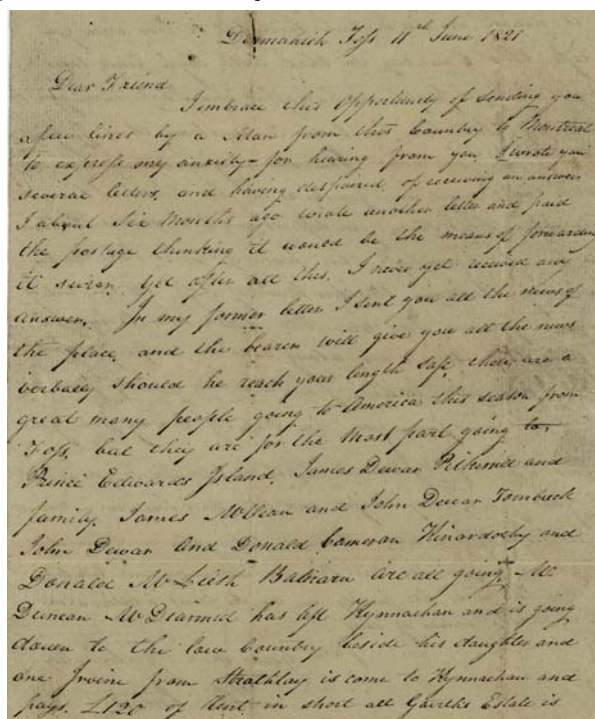 Foss 11th June 1821
Dear Friend
I embrace this opportunity of sending you
a few lines by a Man from this Country to Montreal
to express my anxiety for hearing from you, I wrote you
several letters, and having despaired of receiving an answer
I about Six Months ago wrote another letter and paid
the postage thinking it would be the means of forwarding
it Yet after all this, I never yet received any
answer. In my former letter I sent you all the news of
the place, and the bearer will give you all the news
verbally should he reach your length safe, there are a
great many people going to America this season from
Foss, but they are for the Most part going to
Prince Edwards Island. James Dewar and
family. James McLean and John Dewar
John Dewar and Donald Cameron and
Donald are all going, Mr
Duncan McDiarmid has left Kynnachan and is going
down to the low Country beside his daughter and
one Irvine from is come to Kynnachan and
pays £120 of Rent in short all Estate is